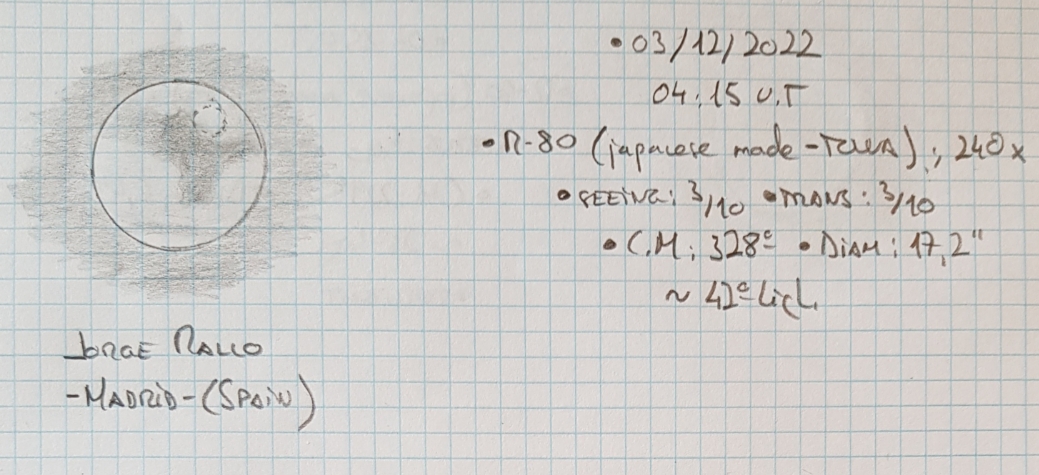 • 03/12/2022
04:15 U.T
• R-80 (japanese made - TOWA); 240x
• SEEING: 3/10 • TRANS: 3/10
• C.M: 328º • DIAM: 17,2"
~ 42º
JORGE RALLO
- MADRID - (SPAIN)